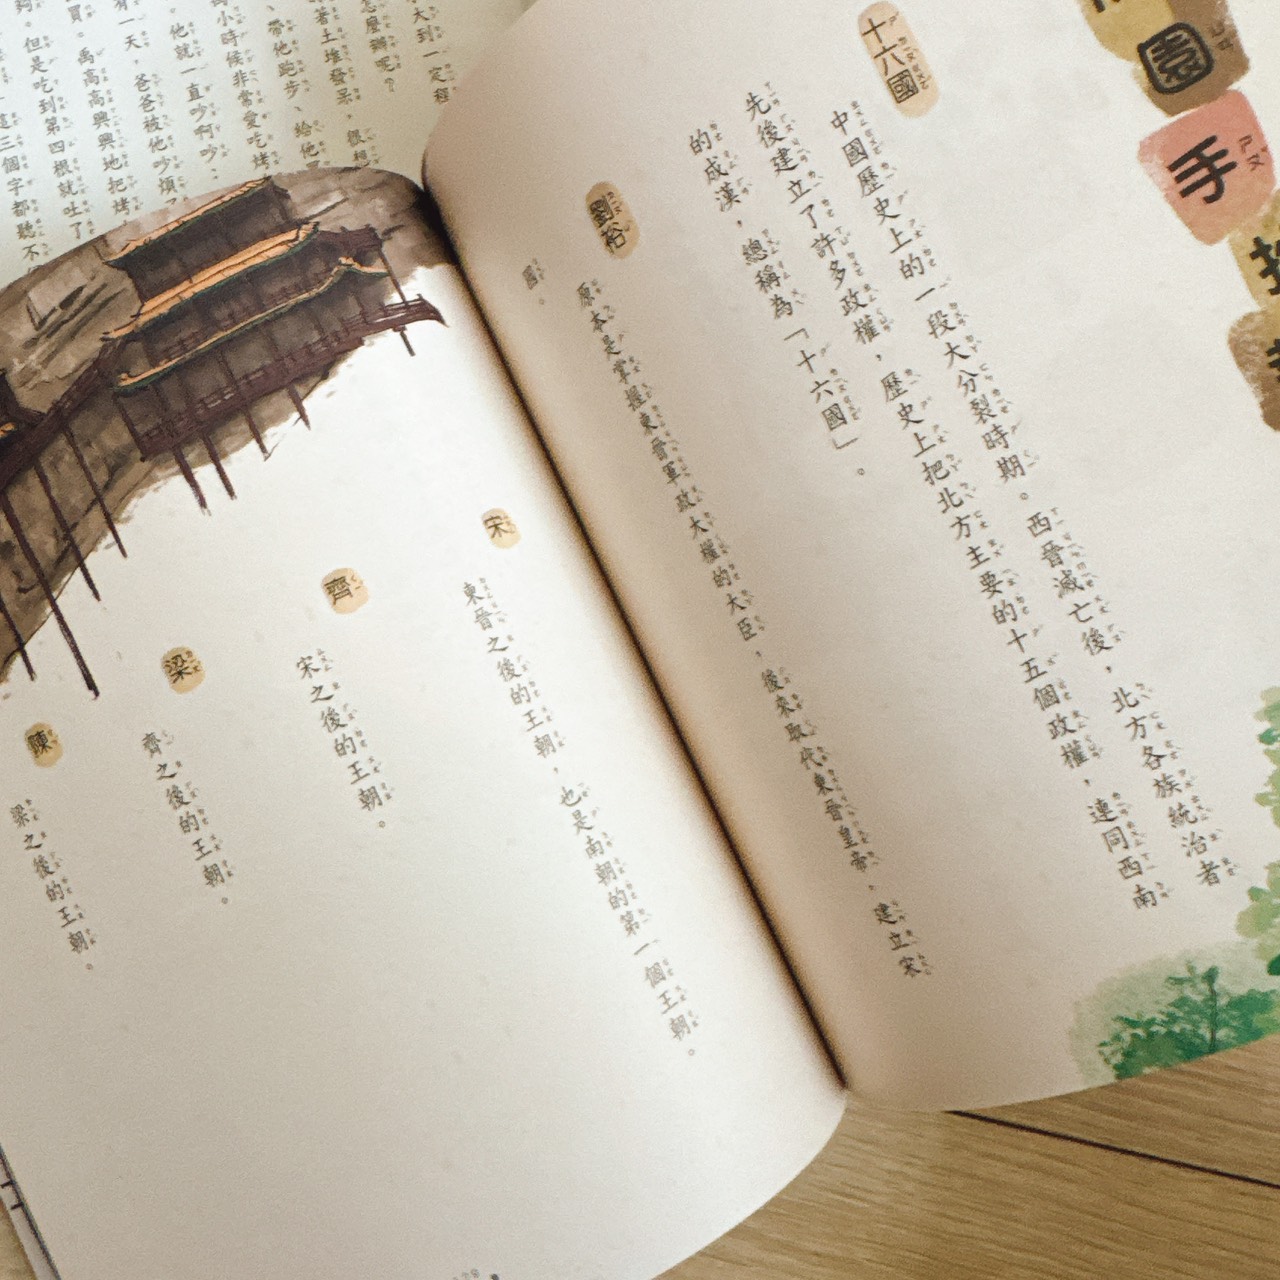 園手
十六國
中國歷史上的一段大分裂時期。西晉滅亡後,北方各族統治者
先後建立了許多政權,歷史上把北方主要的十五個政權,連同西南
的成漢,總稱為「十六國」。
劉裕
原本是掌握東晉軍政大權的大臣,後來取代東晉皇帝,建立宋
國。
宋
東晉之後的王朝,也是南朝的第一個王朝。
齊
宋之後的王朝。
梁
齊之後的王朝。
陳
梁之後的王朝。
大到一定程
怎麼辦呢?
著土堆發呆,很想
帶他跑步、給他
小時候非常愛吃烤
他就一直吵啊吵:
有一天,爸爸被他吵煩
買。禹高高興興地把烤
夠。但是吃到第四根就吐了
這三個字都聽不